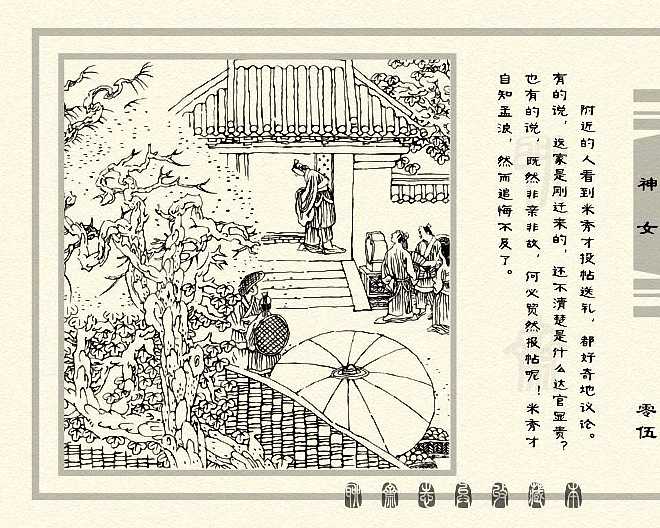 神女
零伍
附近的人看到米秀才投帖送礼，都好奇地议论。
有的说，这家是刚迁来的，还不清楚是什么达官显贵？
也有的说，既然非亲非故，何必贸然投帖呢！米秀才
自知孟浪，然而追悔不及了。